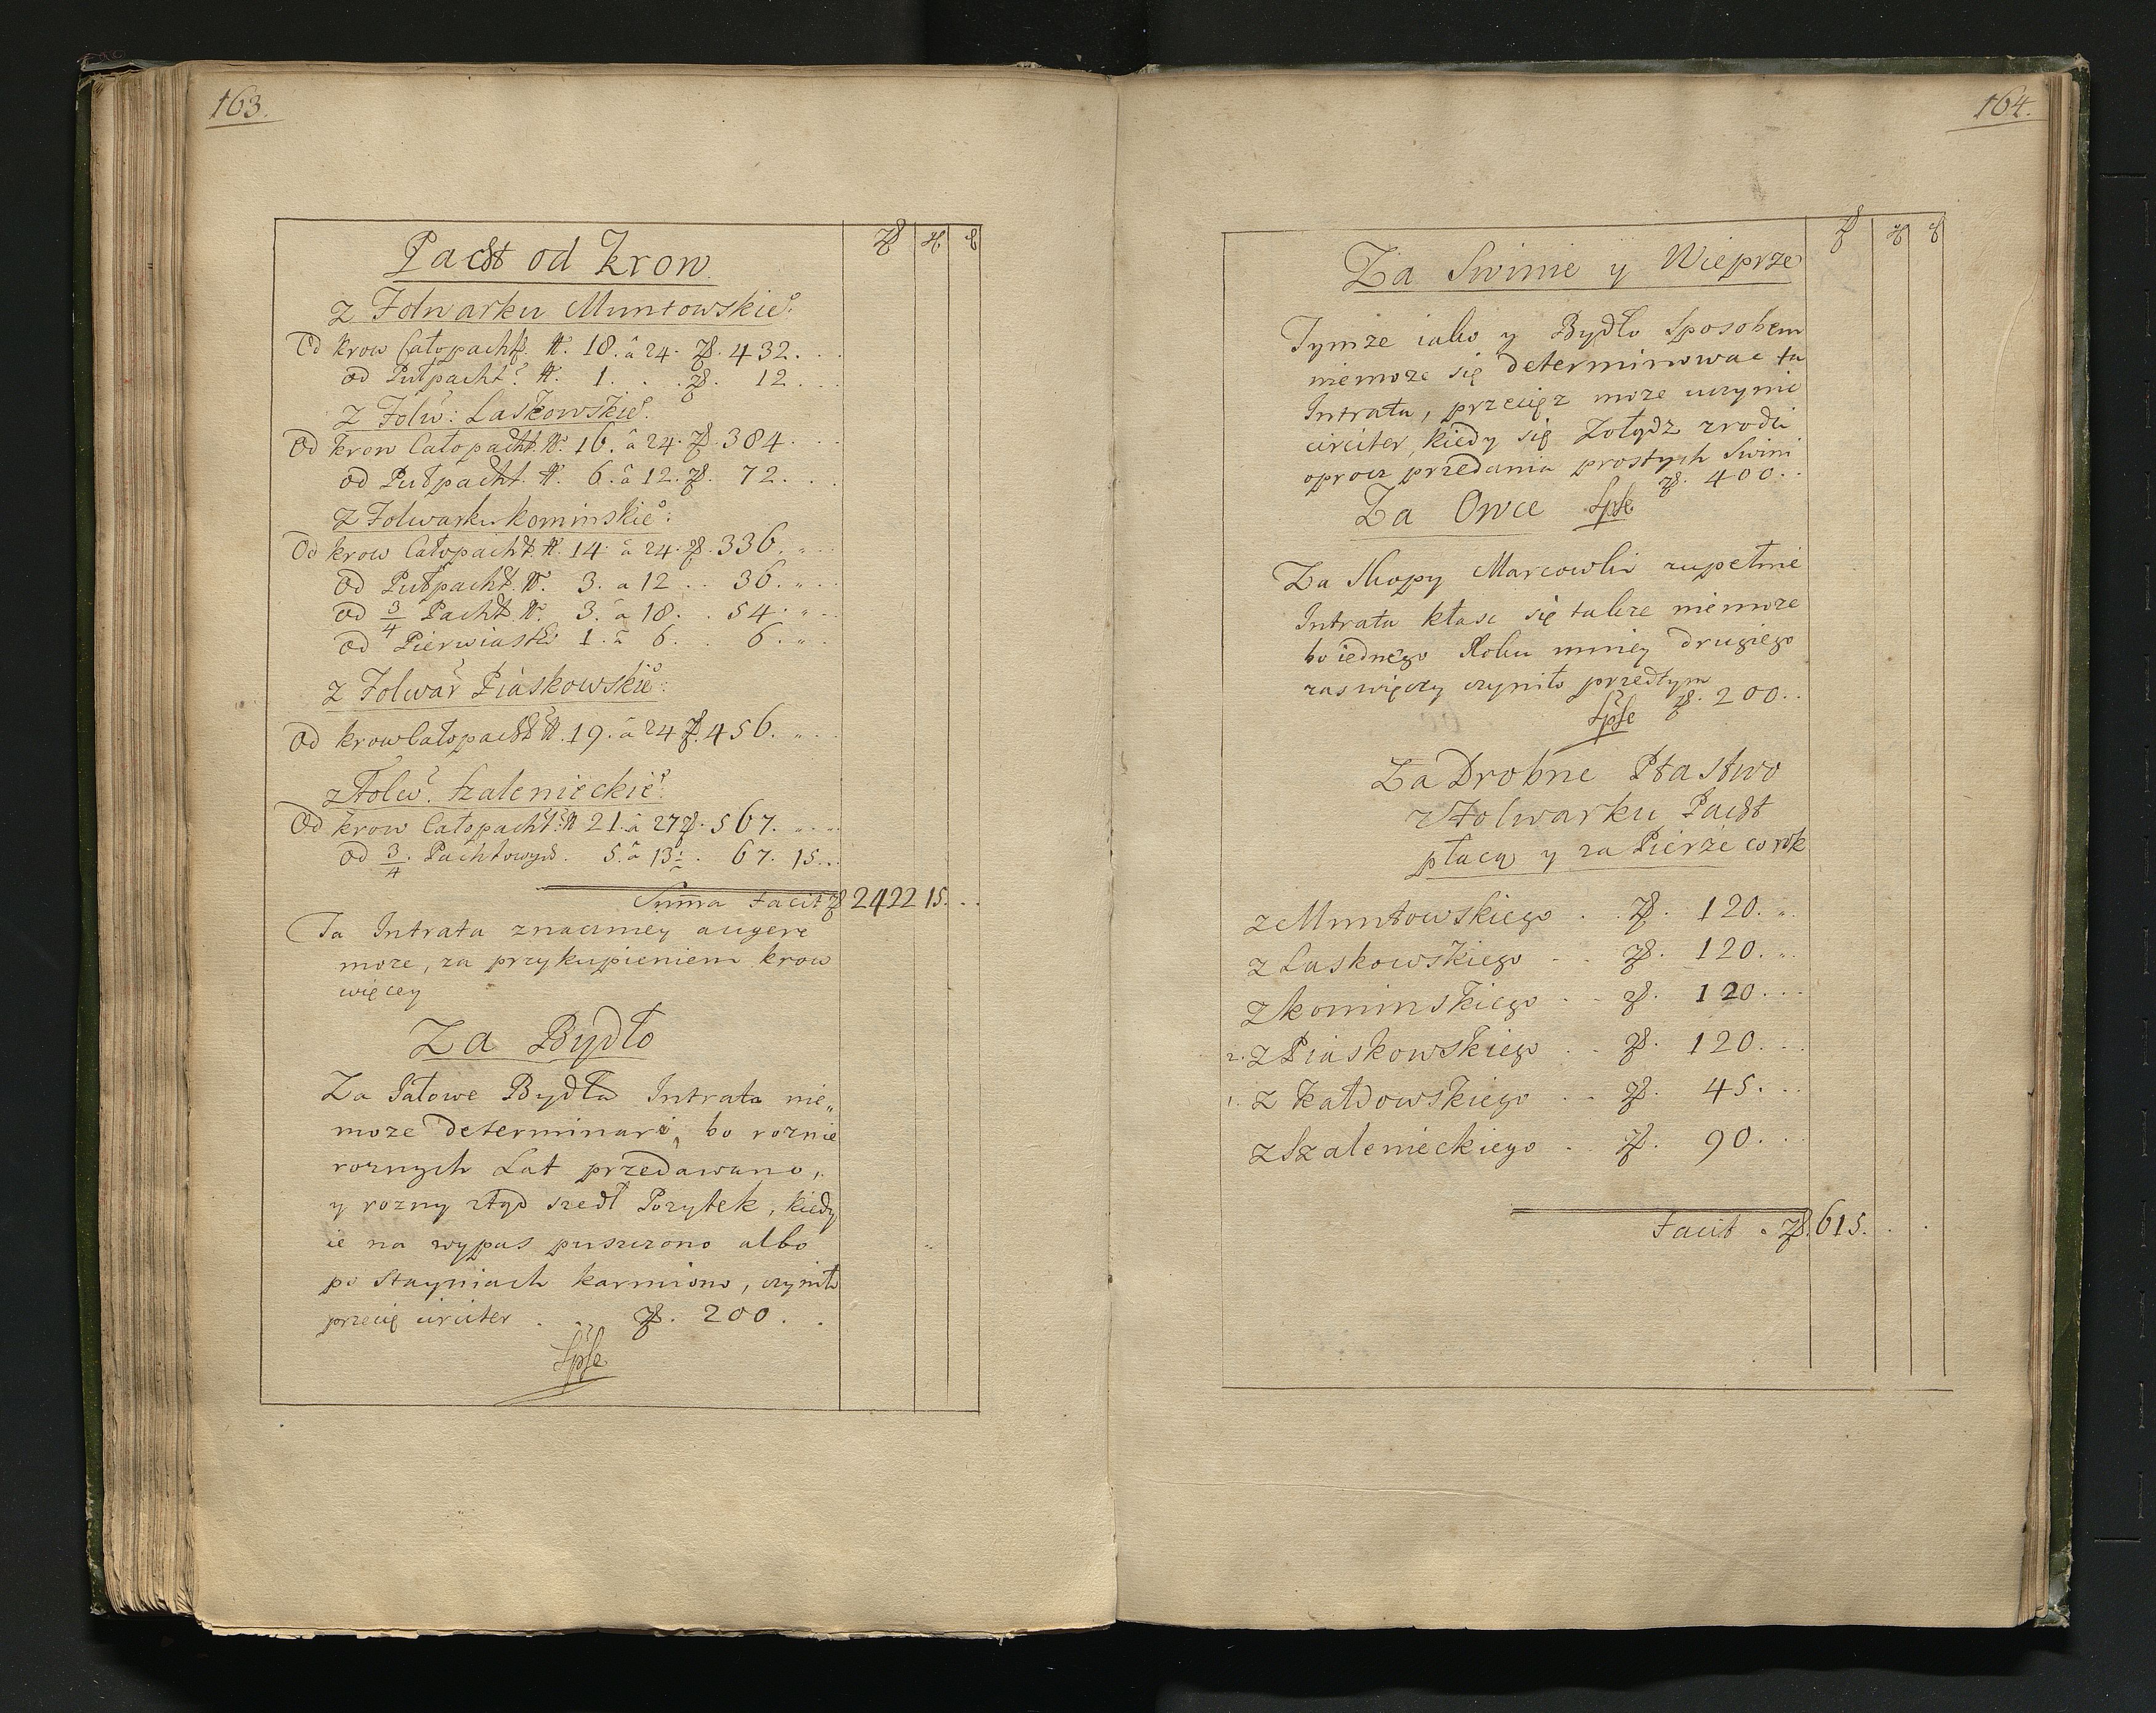 163.
Pacht od Krow
z Folwarku Muntowskie⁰:
Od Krow Całopacht. N. 18. â 24. zł. 432. . .
od Pułpacht. N. 1. . . zł. 12. . .
z Folw: Laskowskie⁰.
Od Krow Całopacht. N. 16. â 24. zł. 384. . .
od Pułpacht. N. 6. â 12. zł. 72. . .
z Folwarku Kominskie⁰:
Od Krow Całopacht. N. 14. â 24. zł. 336. „ . .
Od Pułpacht. N. 3. a 12 . . 36. „ . .
od 3/4 Pacht. N. 3. â 18. . 54. „ . .
od Pierwiastki 1. â 6. . 6. „ . .
z Folwar Piaskowskie⁰:
Od Krow Całopacht N. 19. â 24 zł. 456. „ . .
z Folw. Szalenieckie⁰.
Od Krow Całopacht: N 21. â 27 zł. 567. „ . „
od 3/4. Pachtowych. 5. â 13½. 67. 15 . .
Suma facit zł 2422 15. . .
Ta Intrata znaczniey augere
moze, za przykupieniem Krow
więcey
Za Bydło
Za Jałowe Bydła Intrata nie„
moze determinari, bo roznie
roznych Lat przedawano,
y rozny ztąd szedł Pozytek, kiedy
ie na wypas puszczono albo
po Stayniach karmiono, czyniło
przecię circiter . . zł. 200. .
Łpse
164.
Za Swinie y Wieprze
Tymze iako y Bydło Sposobem
niemoze się determinowac ta
Intrata, przecięz moze uczynic
circiter, kiedy się Zołądz zrodzi
oprocz przedania prostych Swini
zł. 400. .
Za Owce Łpse
Za Skopy Marcowki zupełnie
Intrata kłasc się takze niemoze
bo iednego Roku mniey drugiego
zas więcey czyniło przedtym
Łpse zł. 200. .
Za Drobne Ptastwo
z Folwarku Pacht
płacą y za Pierze co rok
z Muntowskiego . . zł. 120. „
z Laskowskiego . . zł. 120. „
z Kominskiego . . zł. 120. . .
2. z Piaskowskiego . . zł. 120. . .
1. z Kałdowskiego . . zł. 45. . .
z Szalenieckiego . . zł. 90. . .
Facit . zł. 615. . .